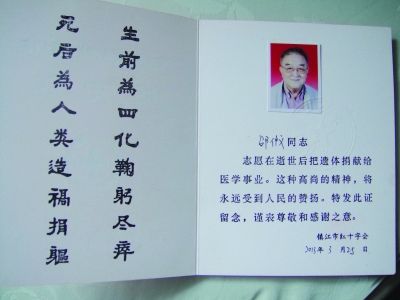 生前為四化鞠躬尽瘁
死后為人类造福捐軀
同志
志愿在逝世后把遗体捐献给
医学事业。这种高尚的精神，将
永远受到人民的赞扬。特发此证
留念，谨表尊敬和感谢之意。
镇江市红十字会
2013年 3 月 25 日